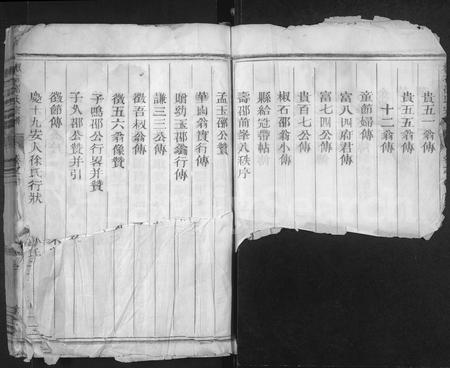 貴五一翁傳
貴五五翁傳
十二翁傳
童節婦傳
富八四府君傳
富七四公傳
貴百七公傳
椒石邵翁小傳
縣給冠帶帖
壽邵前峯八秩序
孟玉邵公贊
華山翁實行傳
贈幼玉邵翁行傳
謙三三公傳
徵吾叔翁傳
徵五六翁像贊
子鳴邵公行畧并贊
子久邵公贊并引
徵節傳
慶十九安人徐氏行狀